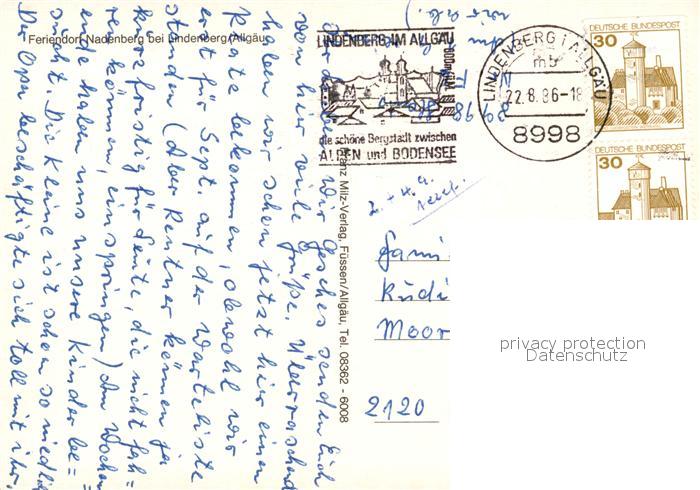 Feriendorf Nadenberg bei Lindenberg/Allgäu
LINDENBERG IM ALLGÄU
800m ü.M.
die schöne Bergstadt zwischen
ALPEN und BODENSEE
LINDENBERG i ALLGÄU
mb
22.8.86-18
8998
DEUTSCHE BUNDESPOST
30
DEUTSCHE BUNDESPOST
30
Franz Milz-Verlag, Füssen/Allgäu, Tel. 08362 - 6008
wir Gesches senden Euch
von hier viele Grüße. Überraschend
haben wir schon jetzt hier einen
Karte bekommen, obwohl wir
erst für Sept. auf der Warteliste
standen (Aber Rentner können ja
kurzfristig für Leute, die nicht fah=
ren können, einspringen) Am Wochen
ende haben uns unsere Kinder be=
sucht. Die Kleine ist schon so niedlich
Der Opa beschäftigte sich toll mit ihr.
Fami
Rudi
Moor
2120
privacy protection
Datenschutz